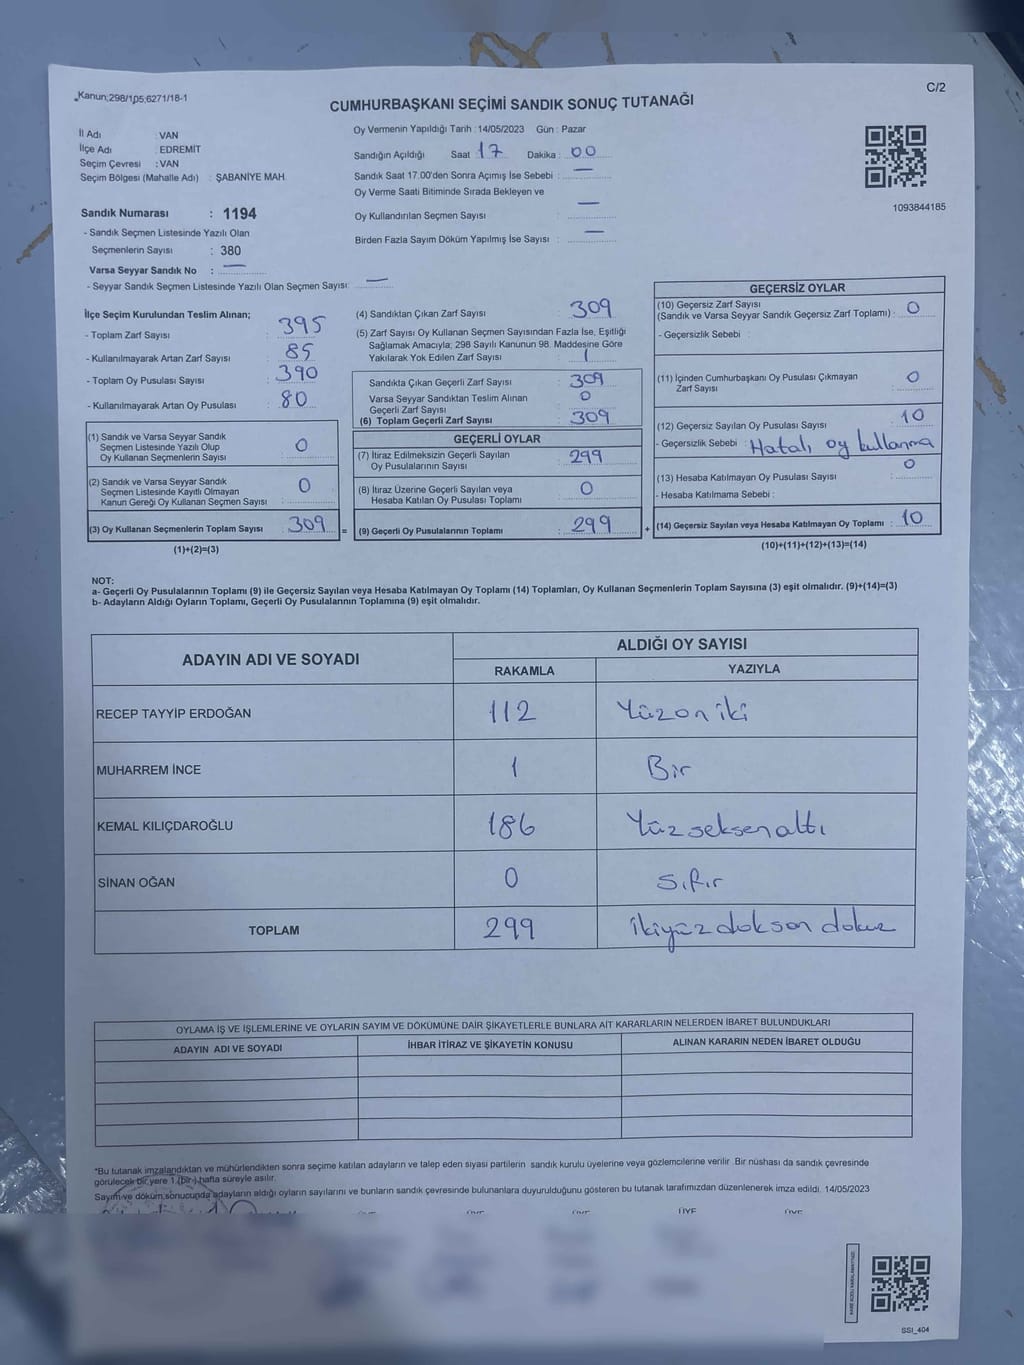 Kanun;298/105;6271/18-1
C/2
CUMHURBAŞKANI SEÇİMİ SANDIK SONUÇ TUTANAĞI
İl Adı : VAN
İlçe Adı : EDREMİT
Seçim Çevresi : VAN
Seçim Bölgesi (Mahalle Adı) : ŞABANİYE MAH.
Sandık Numarası : 1194
- Sandık Seçmen Listesinde Yazılı Olan
Seçmenlerin Sayısı : 380
Varsa Seyyar Sandık No : —
- Seyyar Sandık Seçmen Listesinde Yazılı Olan Seçmen Sayısı: —
Oy Vermenin Yapıldığı Tarih : 14/05/2023 Gün : Pazar
Sandığın Açıldığı Saat 17 Dakika : 00
Sandık Saat 17.00'den Sonra Açımış İse Sebebi : —
Oy Verme Saati Bitiminde Sırada Bekleyen ve
Oy Kullandırılan Seçmen Sayısı —
Birden Fazla Sayım Döküm Yapılmış İse Sayısı : —
1093844185
İlçe Seçim Kurulundan Teslim Alınan;
- Toplam Zarf Sayısı : 395
- Kullanılmayarak Artan Zarf Sayısı : 85
- Toplam Oy Pusulası Sayısı : 390
- Kullanılmayarak Artan Oy Pusulası : 80
(1) Sandık ve Varsa Seyyar Sandık
Seçmen Listesinde Yazılı Olup
Oy Kullanan Seçmenlerin Sayısı : 0
(2) Sandık ve Varsa Seyyar Sandık
Seçmen Listesinde Kayıtlı Olmayan
Kanun Gereği Oy Kullanan Seçmen Sayısı : 0
(3) Oy Kullanan Seçmenlerin Toplam Sayısı : 309 =
(1)+(2)=(3)
(4) Sandıktan Çıkan Zarf Sayısı : 309
(5) Zarf Sayısı Oy Kullanan Seçmen Sayısından Fazla İse, Eşitliği
Sağlamak Amacıyla; 298 Sayılı Kanunun 98. Maddesine Göre
Yakılarak Yok Edilen Zarf Sayısı :
Sandıkta Çıkan Geçerli Zarf Sayısı : 309
Varsa Seyyar Sandıktan Teslim Alınan
Geçerli Zarf Sayısı : 0
(6) Toplam Geçerli Zarf Sayısı : 309
GEÇERLİ OYLAR
(7) İtiraz Edilmeksizin Geçerli Sayılan
Oy Pusulalarının Sayısı : 299
(8) İtiraz Üzerine Geçerli Sayılan veya
Hesaba Katılan Oy Pusulası Toplamı : 0
(9) Geçerli Oy Pusulalarının Toplamı : 299 +
GEÇERSİZ OYLAR
(10) Geçersiz Zarf Sayısı
(Sandık ve Varsa Seyyar Sandık Geçersiz Zarf Toplamı) : 0
- Geçersizlik Sebebi :
(11) İçinden Cumhurbaşkanı Oy Pusulası Çıkmayan
Zarf Sayısı : 0
(12) Geçersiz Sayılan Oy Pusulası Sayısı : 10
- Geçersizlik Sebebi : Hatalı oy kullanma
(13) Hesaba Katılmayan Oy Pusulası Sayısı : 0
- Hesaba Katılmama Sebebi :
(14) Geçersiz Sayılan veya Hesaba Katılmayan Oy Toplamı : 10
(10)+(11)+(12)+(13)=(14)
NOT:
a- Geçerli Oy Pusulalarının Toplamı (9) ile Geçersiz Sayılan veya Hesaba Katılmayan Oy Toplamı (14) Toplamları, Oy Kullanan Seçmenlerin Toplam Sayısına (3) eşit olmalıdır. (9)+(14)=(3)
b- Adayların Aldığı Oyların Toplamı, Geçerli Oy Pusulalarının Toplamına (9) eşit olmalıdır.
ADAYIN ADI VE SOYADI
ALDIĞI OY SAYISI
RAKAMLA YAZIYLA
RECEP TAYYİP ERDOĞAN 112 Yüzoniki
MUHARREM İNCE 1 Bir
KEMAL KILIÇDAROĞLU 186 Yüz seksen altı
SİNAN OĞAN 0 Sıfır
TOPLAM 299 İkiyüz doksan dokuz
OYLAMA İŞ VE İŞLEMLERİNE VE OYLARIN SAYIM VE DÖKÜMÜNE DAİR ŞİKAYETLERLE BUNLARA AİT KARARLARIN NELERDEN İBARET BULUNDUKLARI
ADAYIN ADI VE SOYADI İHBAR İTİRAZ VE ŞİKAYETİN KONUSU ALINAN KARARIN NEDEN İBARET OLDUĞU
*Bu tutanak imzalandıktan ve mühürlendikten sonra seçime katılan adayların ve talep eden siyasi partilerin sandık kurulu üyelerine veya gözlemcilerine verilir. Bir nüshası da sandık çevresinde
görülecek bir yere 1 (bir) hafta süreyle asılır.
Sayım ve döküm sonucunda adayların aldığı oyların sayılarını ve bunların sandık çevresinde bulunanlara duyurulduğunu gösteren bu tutanak tarafımızdan düzenlenerek imza edildi. 14/05/2023
ÜYE ÜYE ÜYE ÜYE ÜYE
SSI_404